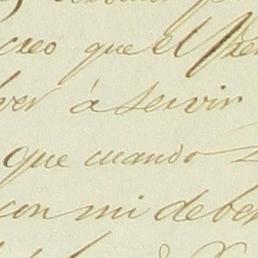 creo que el Pre
ver á servir
que cuando
con mi deber